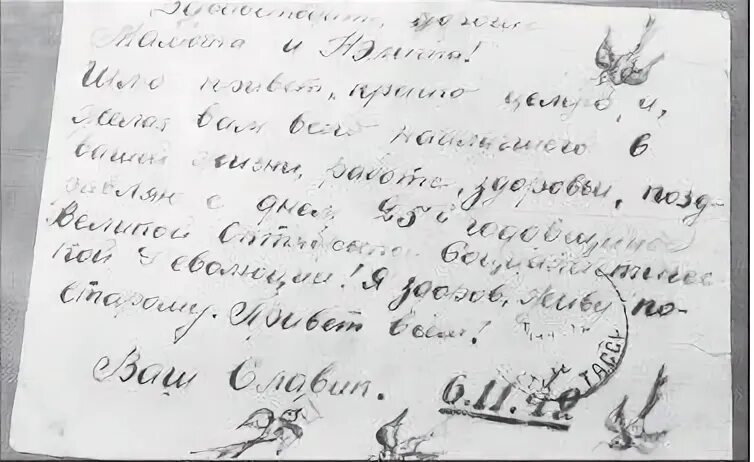 Здравствуйте, дорогие
Мамочка и Нэличка!
Шлю привет, крепко целую, и,
желая вам всего наилучшего в
вашей жизни, работе, здоровьи, позд-
равляю с днем 25й годовщины
Великой Октябрьской Социалистичес-
кой Революции! Я здоров, живу по-
старому. Привет всем!
Ваш Славик. 6.11.42
ТАССР